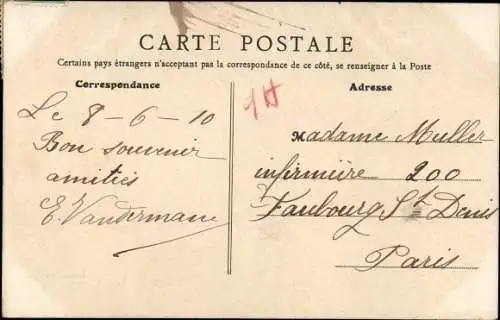 CARTE POSTALE
Certains pays étrangers n'acceptant pas la correspondance de ce côté, se renseigner à la Poste
Correspondance
Le 8-6-10
Bon souvenir
amitiés
E. Vandermane
1H
Adresse
Madame Muller
infirmière 200
Faubourg St Denis
Paris